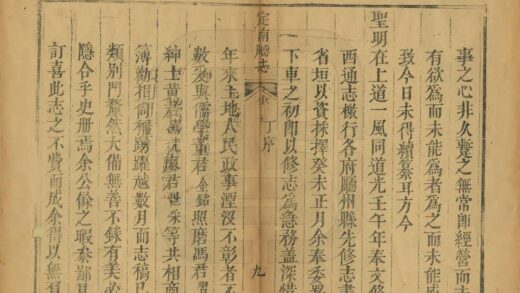 事之心非久蟄之無常卽經營而未
有欲爲而未能爲者爲之而未能成
致今日未得續纂耳方今
聖明在上道一風同道光壬午年奉文修
西通志檄行各府廳州縣先修志書
省垣以資採擇癸未正月余奉委
下車之初卽以修志爲急務蓋深惜
定南廳志
丁序
九
年來土地人民政事湮沒不彰者不
數與儒學董君銘照磨馮君
紳士黃君沈君世采等共相商
簿勸捐同稱踴躍越數月而志稿已
類別門釐然大備無善不錄有美必
隱合乎史册焉余公餘之暇鄙
訂喜此志之不費而成余得以無負